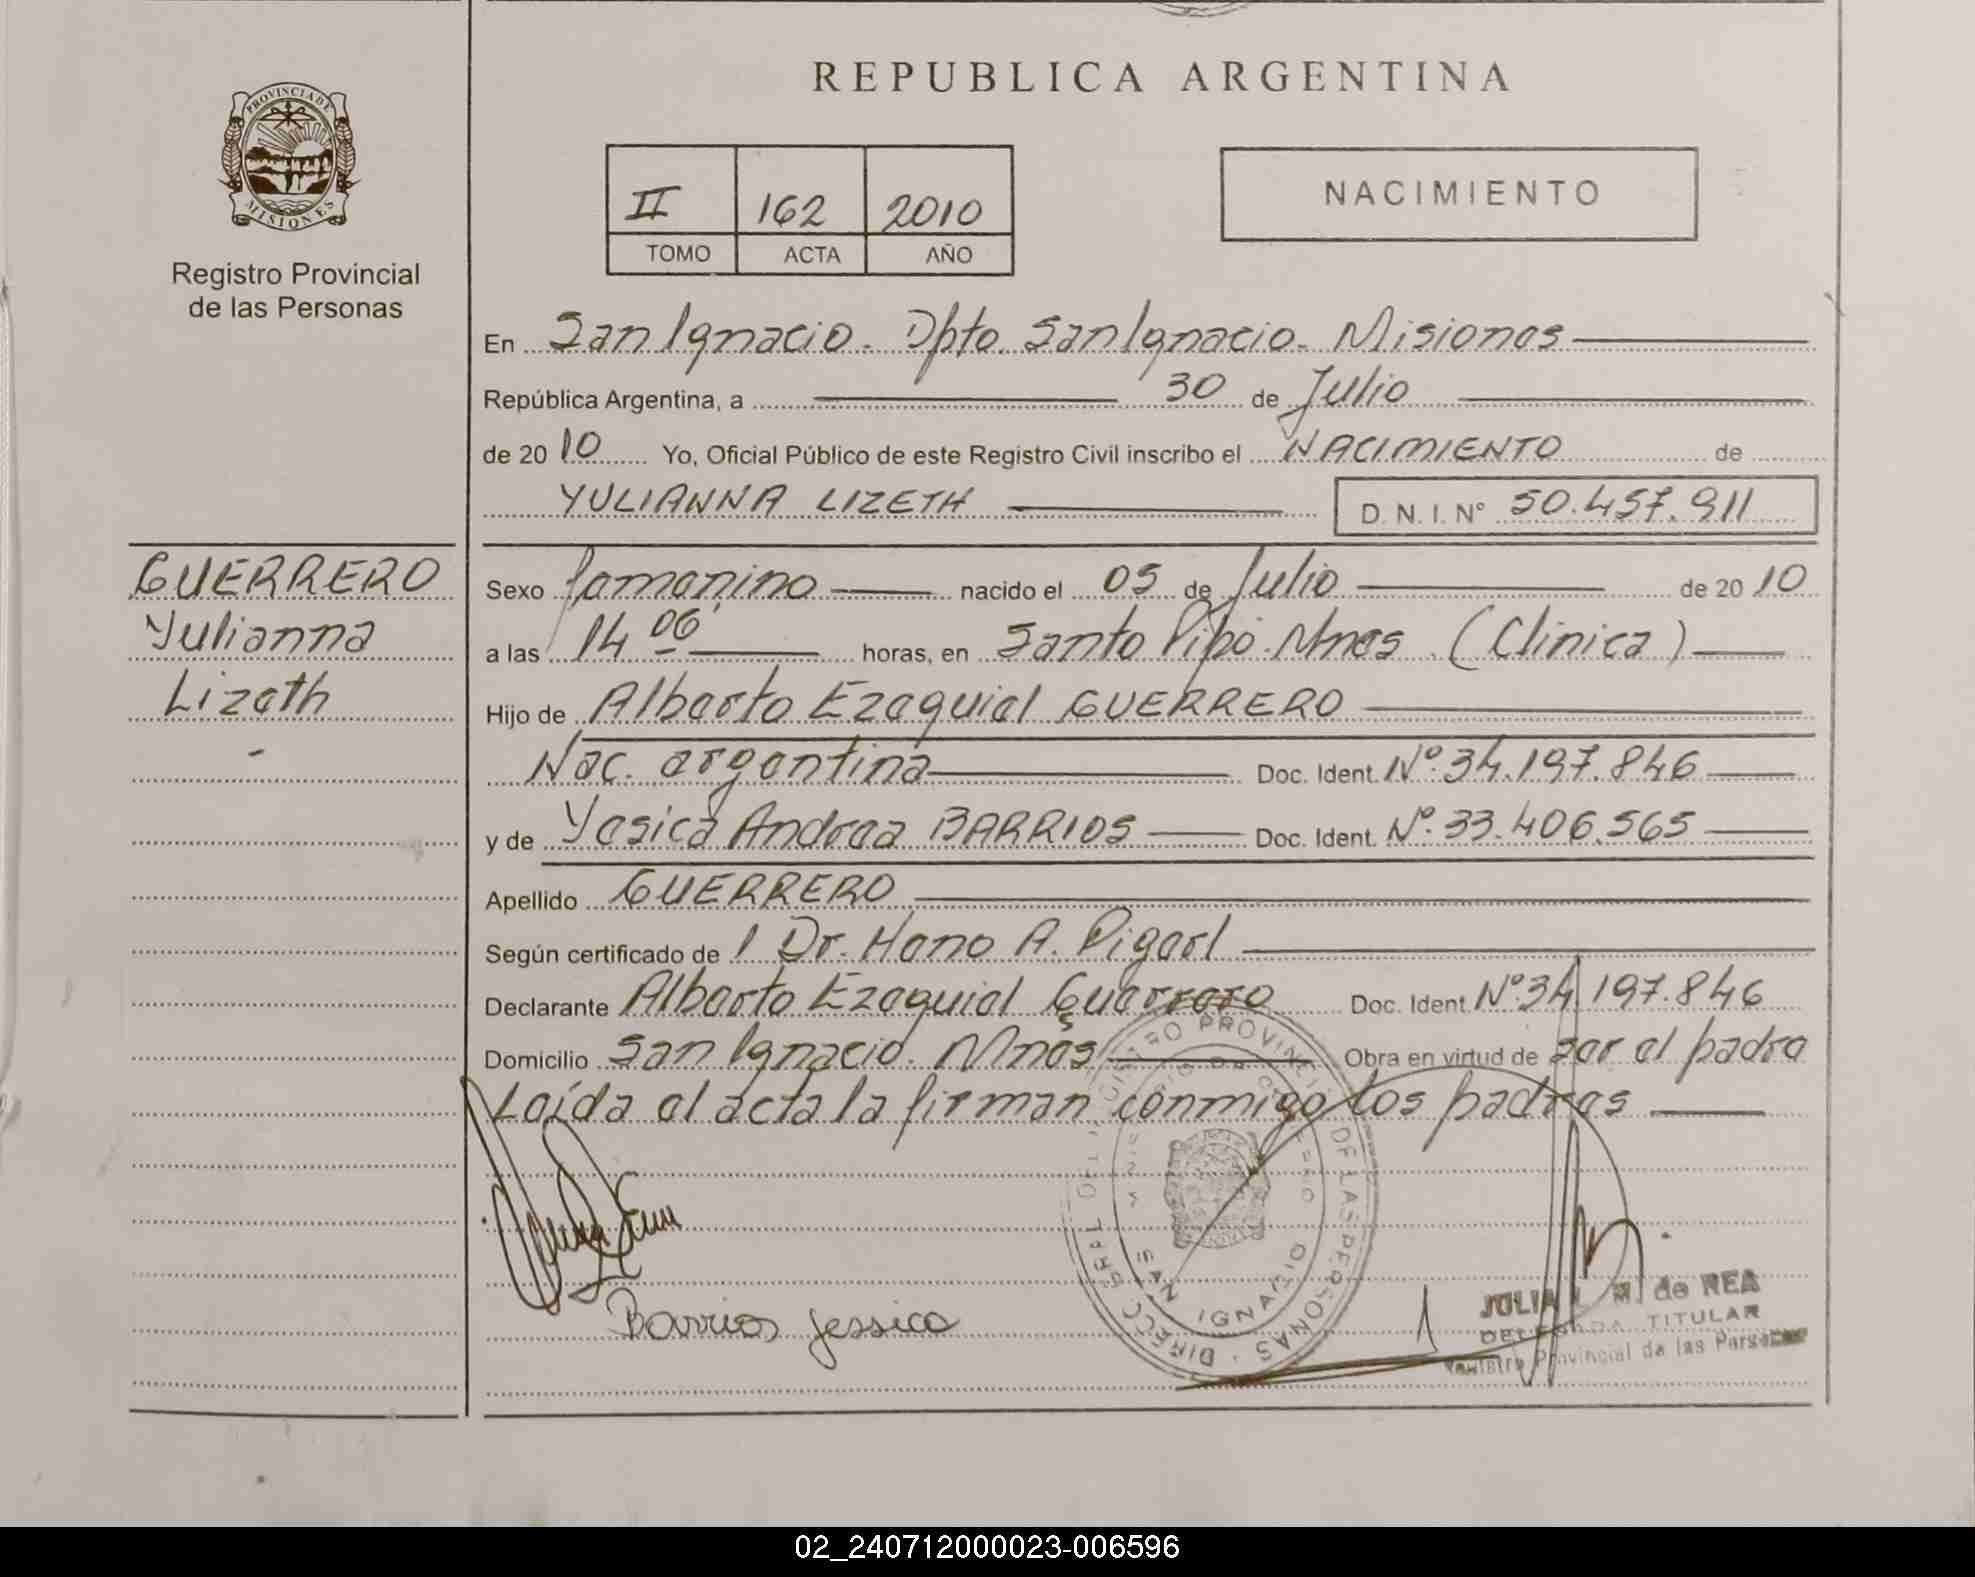 PROVINCIA DE
MISIONES
Registro Provincial
de las Personas
GUERRERO
Yulianna
Lizeth
REPUBLICA ARGENTINA
II 162 2010
TOMO ACTA AÑO
NACIMIENTO
En San Ignacio. Dpto. San Ignacio. Misiones
República Argentina, a 30 de Julio
de 2010 Yo, Oficial Público de este Registro Civil inscribo el NACIMIENTO de
YULIANNA LIZETH D. N. I. N° 50.457.911
Sexo femenino nacido el 05 de Julio de 2010
a las 14 06' horas, en Santo Pipó. Mnes (Clínica)
Hijo de Alberto Ezequiel GUERRERO
Nac. argentina Doc. Ident. N° 34.197.846
y de Yesica Andrea BARRIOS Doc. Ident. N° 33.406.565
Apellido GUERRERO
Según certificado de 1 Dr. Hano A. Pigerl
Declarante Alberto Ezequiel Guerrero Doc. Ident. N° 34.197.846
Domicilio San Ignacio. Mnes Obra en virtud de ser el padre
Leída el acta la firman conmigo los padres
Barrios Jessica
REGISTRO PROVINCIAL DE LAS PERSONAS
SAN IGNACIO
M. de REA
DELEGADA TITULAR
Registro Provincial de las Personas
02_240712000023-006596